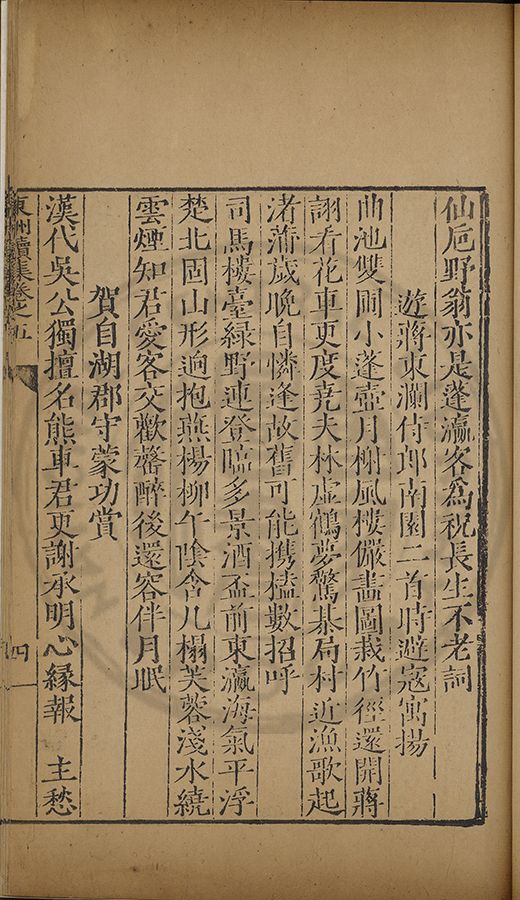 仙卮野翁亦是蓬瀛客為祝長生不老詞
遊蔣東瀾侍郎南園二首時避寇寓揚
曲池雙圃小蓬壺月榭風樓儼畫圖栽竹徑還開蔣
詡看花車更度堯夫林虛鶴夢驚棊局村近漁歌起
渚蒲歲晚自憐逢故舊可能携榼數招呼
司馬樓臺綠野連登臨多景酒盃前東瀛海氣平浮
楚北固山形逈抱燕楊柳午陰含几榻芙蓉淺水繞
雲煙知君愛客交歡罄醉後還容伴月眠
賀自湖郡守蒙功賞
漢代吳公獨擅名熊車君更謝承明心緣報 主愁
東州續集卷之五
四